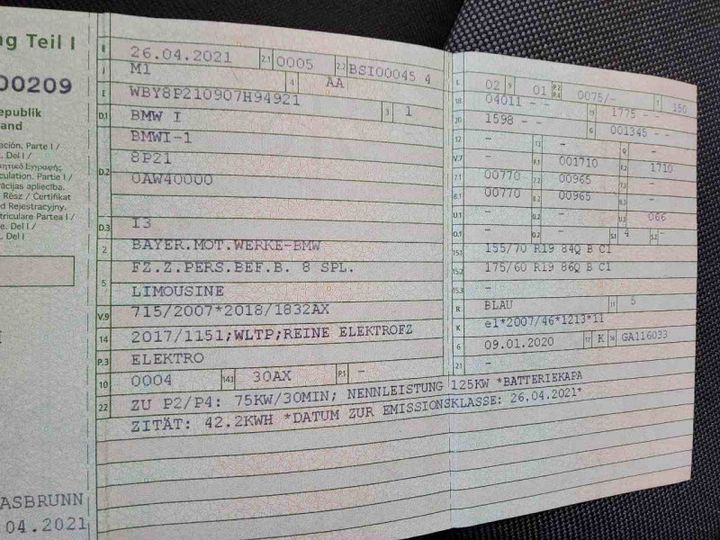 ng Teil I
00209
epublik
and
ación. Parte I /
. Del I /
culation. Parte I /
Rész / Certificat
d Rejestracyjny.
triculare Partea I /
e. Del I /
. Del I
I
ASBRUNN
.04.2021
B 26.04.2021 2.1 0005 2.2 BSI00045 4
J M1 4 AA
E WBY8P210907H94921 3 1
D.1 BMW I
BMWI-1
D.2 8P21
0AW40000
D.3 I3
2 BAYER.MOT.WERKE-BMW
5 FZ.Z.PERS.BEF.B. 8 SPL.
LIMOUSINE
V.9 715/2007*2018/1832AX
14 2017/1151;WLTP;REINE ELEKTROFZ
P.3 ELEKTRO
10 0004 14.1 30AX P.1 -
22 ZU P2/P4: 75KW/30MIN; NENNLEISTUNG 125KW *BATTERIEKAPA
ZITÄT: 42.2KWH *DATUM ZUR EMISSIONSKLASSE: 26.04.2021*
L 02 9 01 P.2 P.4 0075/- T 150
18 04011 - - 19 1775 - -
20 1598 - - G 001345 - -
12 - 13 - Q -
V.7 - F.1 001710 F.2 1710
7.1 00770 7.2 00965 7.3 -
8.1 00770 8.2 00965 8.3 -
U.1 - U.2 - U.3 066
O.1 - O.2 - S.1 4 S.2 -
15.1 155/70 R19 84Q B C1
15.2 175/60 R19 86Q B C1
15.3 -
R BLAU 11 5
K e1*2007/46*1213*11
6 09.01.2020 17 K 16 GA116033
21 -